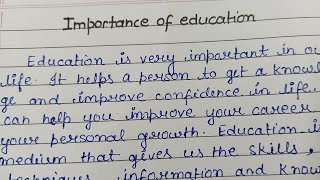 Importance of education
Education is very important in
life. It helps a person to get a knowl
ge and improve confidence in life.
can help you improve your career
your personal growth. Education i
medium that gives us the skills,
techniques, information and know